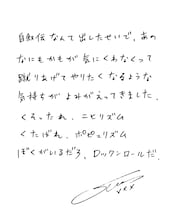 自叙伝なんて出したせいで、あの
なにもかもが気にくわなくって
蹴りあげてやりたくなるような
気持ちがよみがえってきました。
くそったれ、ニヒリズム
くたばれ、ポピュリズム
ぼくがいるだろ、ロックンロールだ。